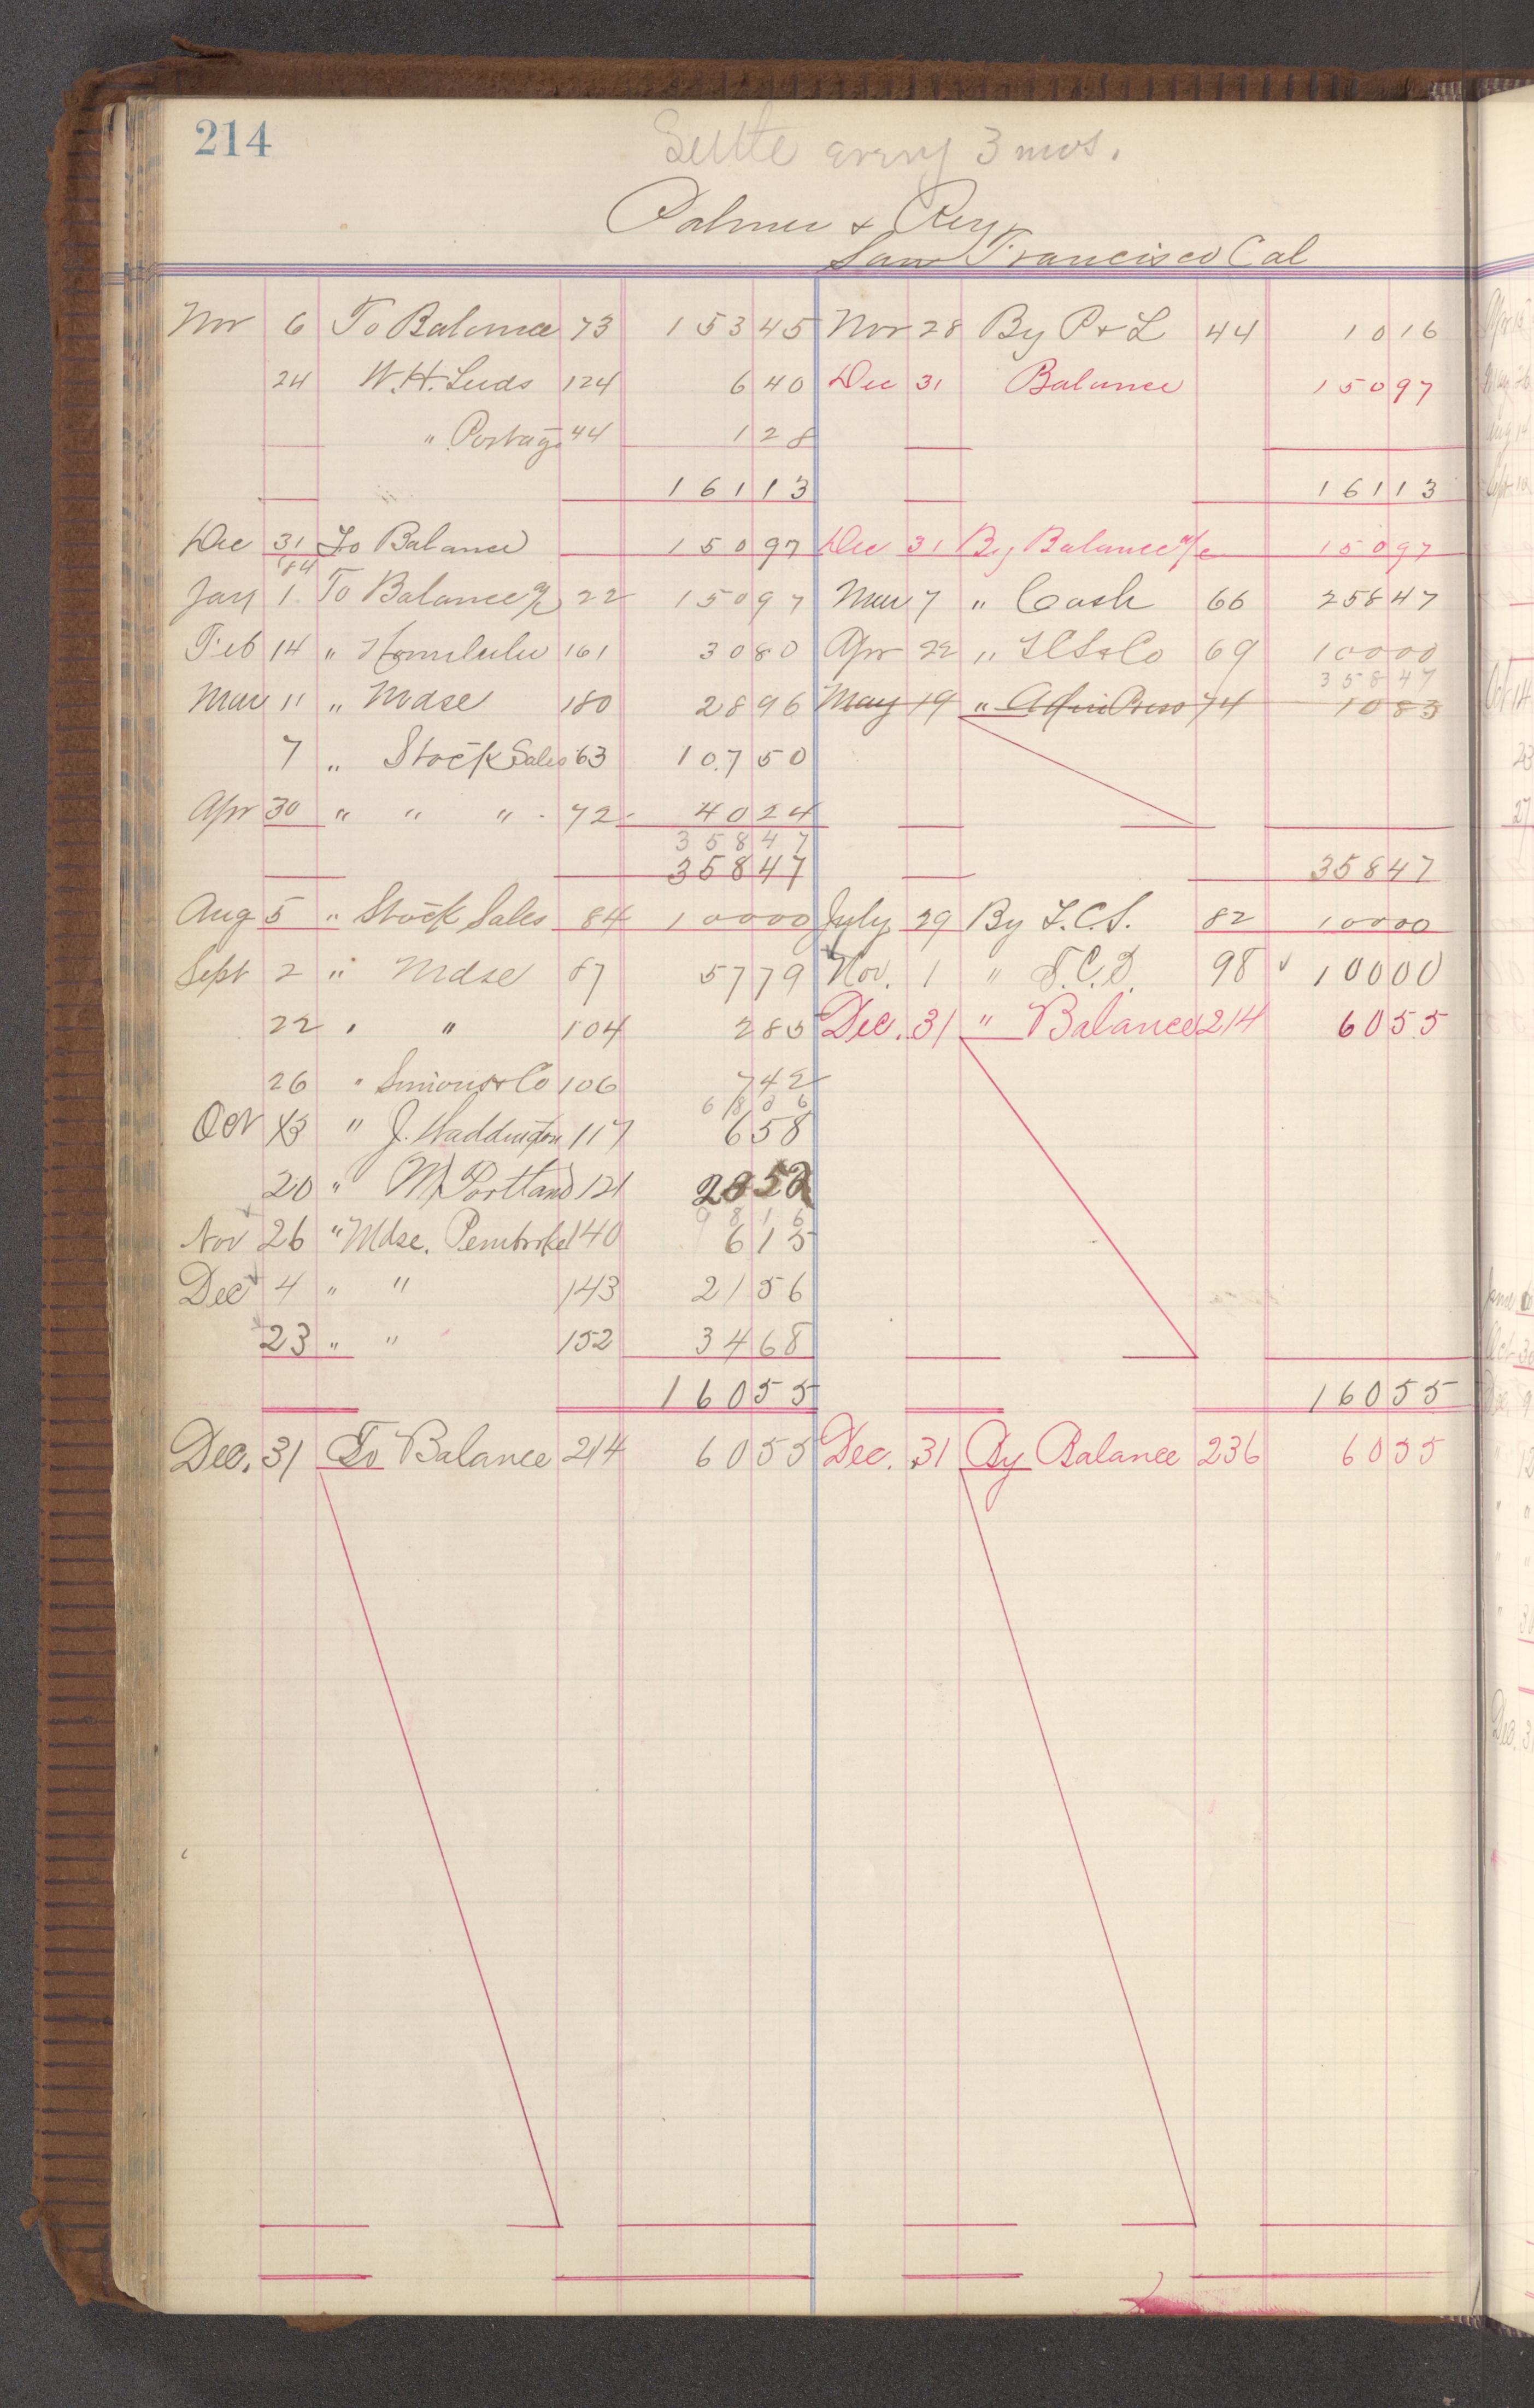 214
Settle every 3 mos.
Palmer & Rey
San Francisco Cal
Nov 6 To Balance 73 153 45 Nov 28 By P & L 44 10 16
24 W. H. Leeds 124 6 40 Dec 31 Balance 150 97
" Postage 44 1 28
161 13 161 13
Dec 31 To Balance 150 97 Dec 31 By Balance a/c 150 97
'84
Jany 1 To Balance a/c 22 150 97 Mar 7 " Cash 66 258 47
Feb 14 " Honolulu 161 30 80 Apr 22 " 69 100 00
358 47
Mar 11 " Mdse 180 28 96 May 19 " 74 10 83
7 " Stock Sales 63 107 50
Apr 30 " " " 72 40 24
358 47
358 47 358 47
Aug 5 " Stock Sales 84 100 00 July 29 By T. C. S. 82 100 00
Sept 2 " Mdse 87 57 79 Nov. 1 " 98 100 00
22 " " 104 2 85 Dec. 31 " Balance 214 60 55
26 " & Co 106 7 42
68 06
Oct 13 " J. Waddington 117 6 58
20 " Portland 121
98 16
Nov 26 " Mdse. Pembroke 140 6 15
Dec 4 " " 143 21 56
23 " " 152 34 68
160 55 160 55
Dec. 31 To Balance 214 60 55 Dec. 31 By Balance 236 60 55